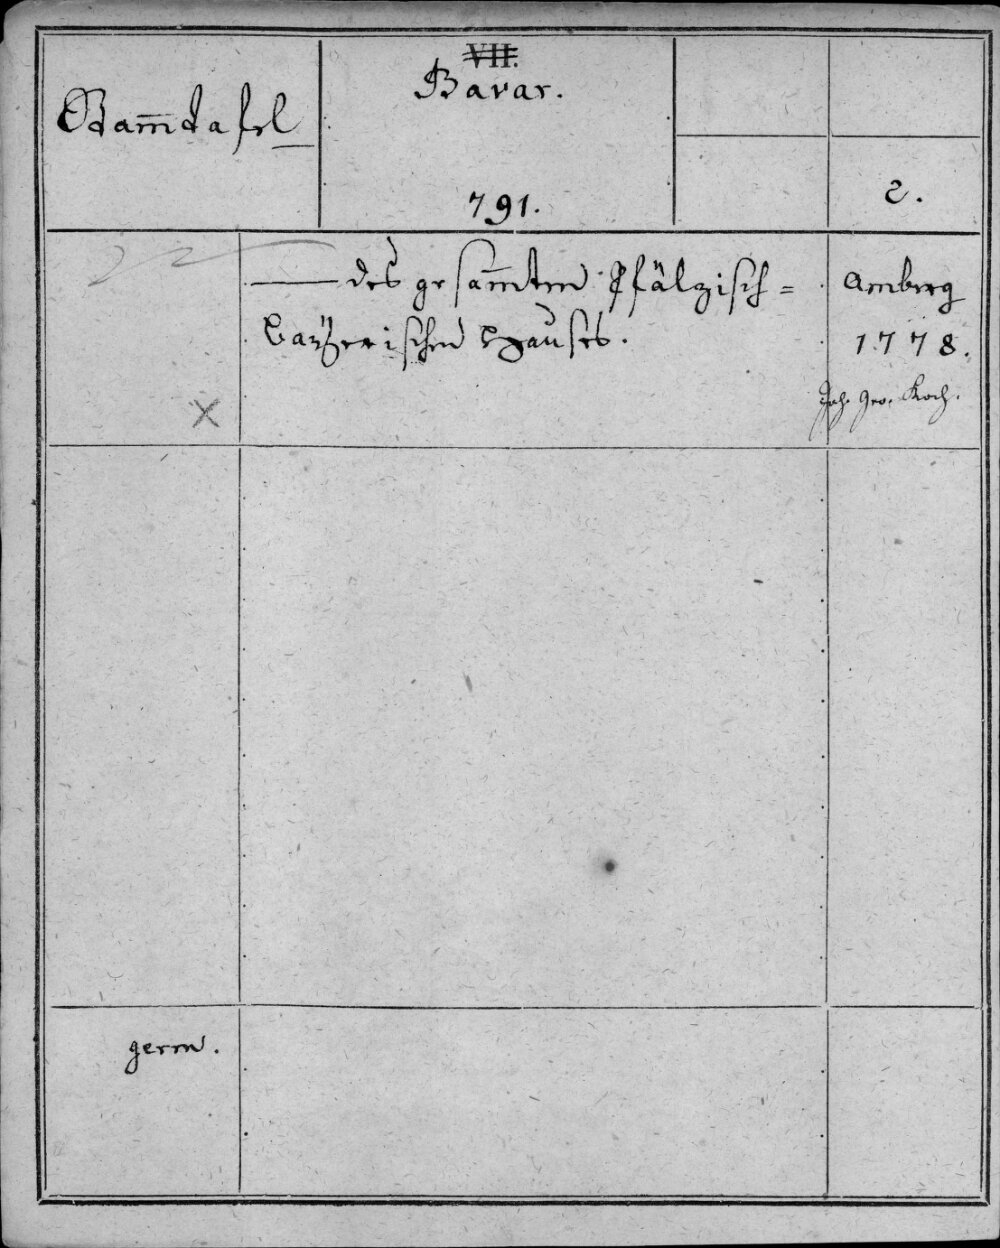 Stam̅tafel
VII.
Bavar.
791.
2.
— des gesam̅ten Pfälzisch=
bayerischen Hauses.
Amberg
1778.
Joh. Geo. Koch.
X
germ.